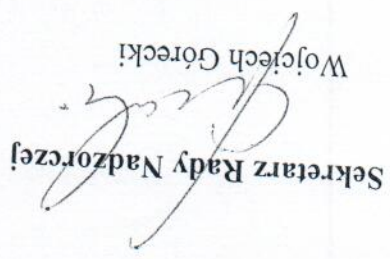 Sekretarz Rady Nadzorczej
Wojciech Górecki